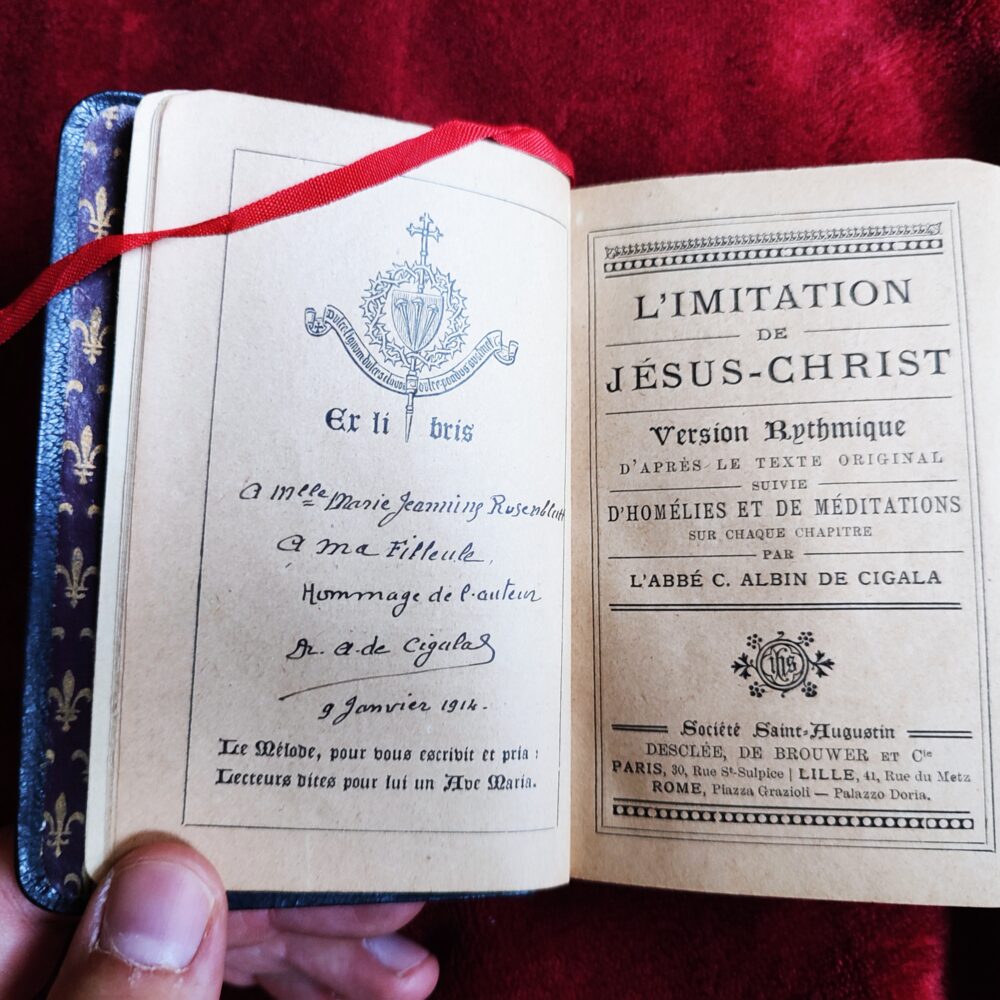 Dulce lignum dulces clavos dulce pondus sustinet
Ex libris
A Mlle Marie Jeannine Rosenblatt
A ma Filleule,
Hommage de l'auteur
A. de Cigala
9 Janvier 1914.
Le Mélode, pour vous escribit et pria :
Lecteurs dites pour lui un Ave Maria.
L'IMITATION
DE
JÉSUS-CHRIST
Version Rythmique
D'APRÈS LE TEXTE ORIGINAL
SUIVIE
D'HOMÉLIES ET DE MÉDITATIONS
SUR CHAQUE CHAPITRE
PAR
L'ABBÉ C. ALBIN DE CIGALA
ihs
Société Saint-Augustin
DESCLÉE, DE BROUWER ET Cie
PARIS, 30, Rue St-Sulpice | LILLE, 41, Rue du Metz
ROME, Piazza Grazioli — Palazzo Doria.